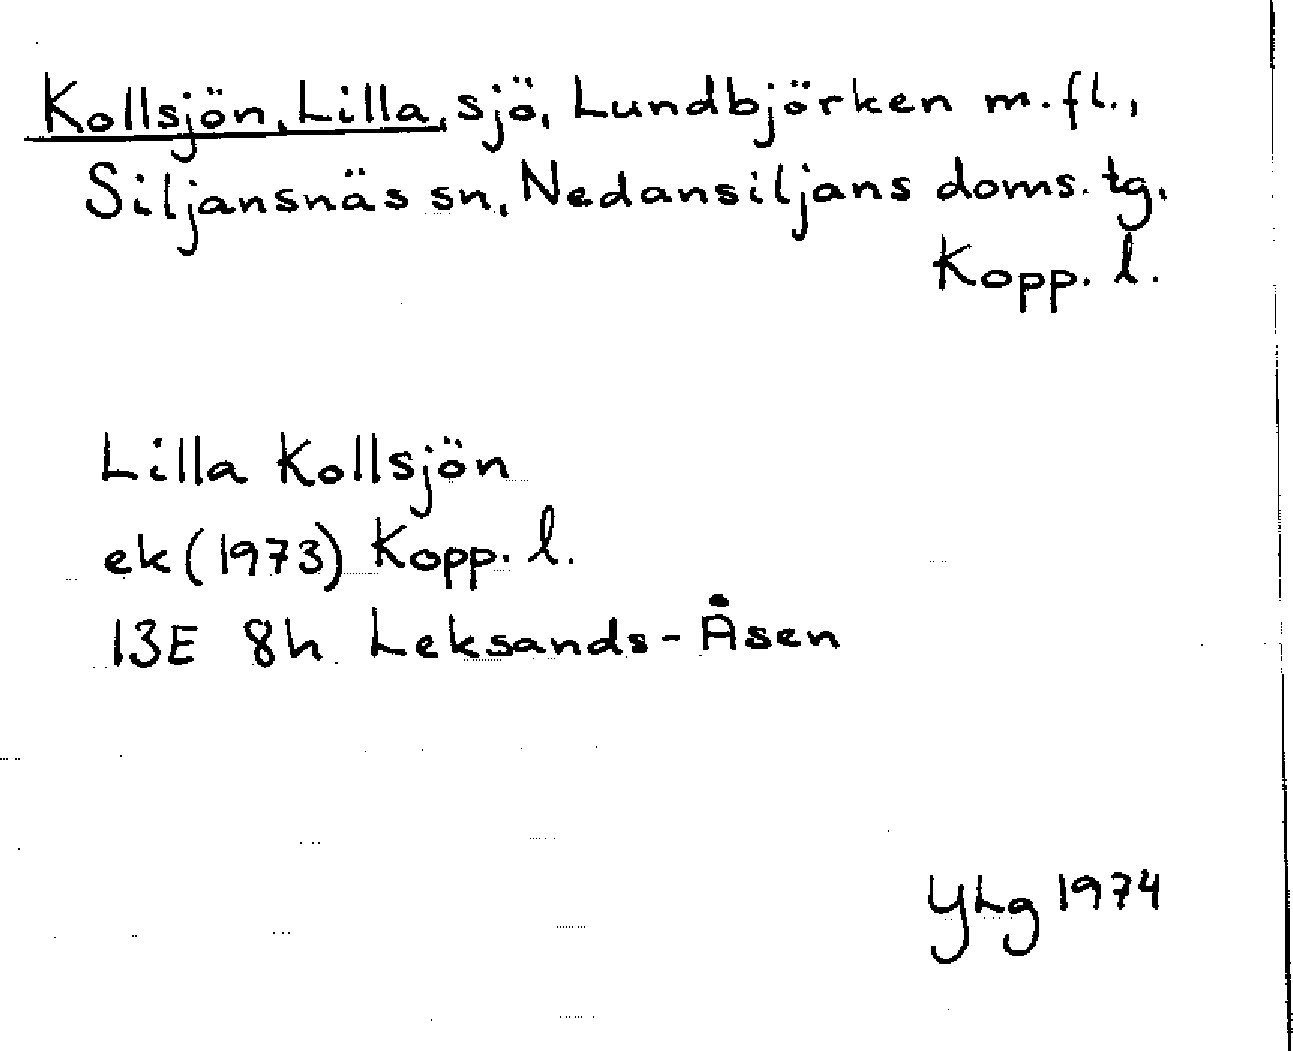 Kollsjön, Lilla, sjö, Lundbjörken m.fl.,
Siljansnäs sn, Nedansiljans doms. tg,
Kopp. l.
Lilla Kollsjön
ek (1973) Kopp. l.
13E 8h Leksands-Åsen
YLg 1974